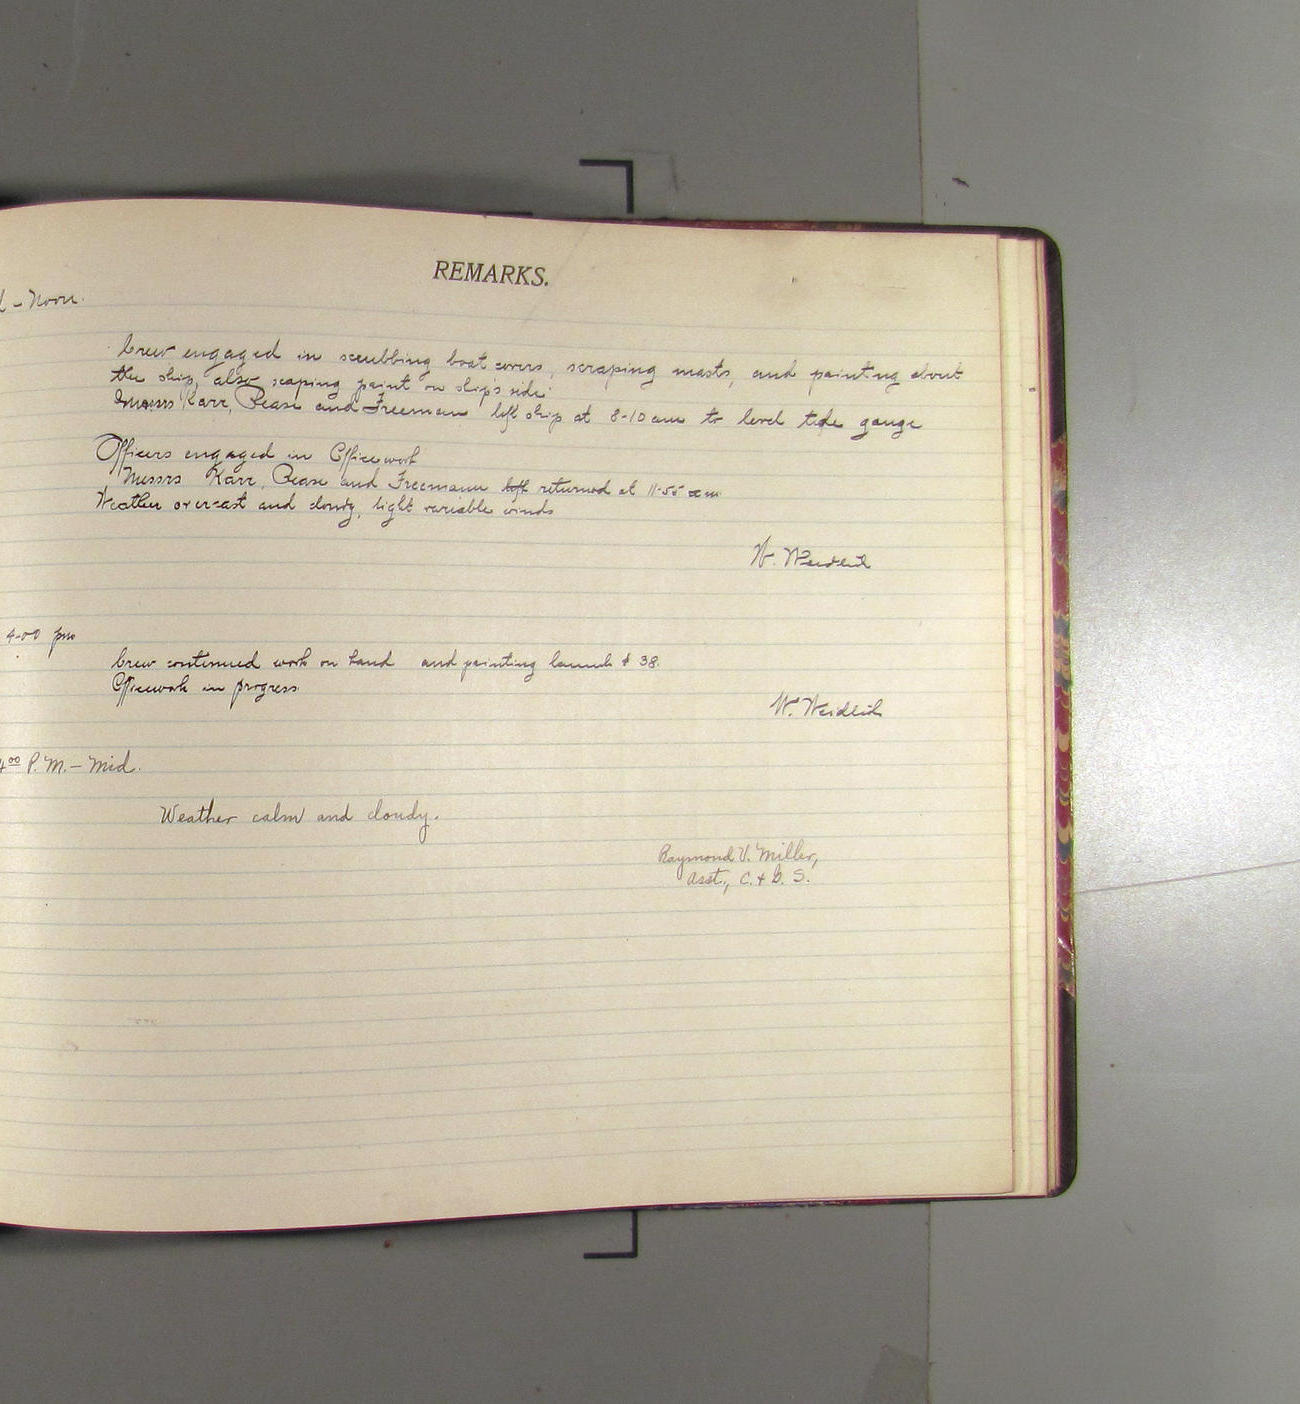 REMARKS.
- Noon.
Crew engaged in scrubbing boat covers, scraping masts, and painting about
the ship, also scaping paint on ship's side.
Messrs Karr, Pease and Freeman left ship at 8-10 am to level tide gauge
Officers engaged in Officework
Messrs Karr, Pease and Freemann left returned at 11-55 am.
Weather overcast and cloudy, light variable winds
W. Weidlich
4-00 pm
Crew continued work on hand and painting launch # 38.
Officework in progress
W. Weidlich
4⁰⁰ P.M. - Mid.
Weather calm and cloudy.
Raymond V. Miller,
Asst., C. & G. S.